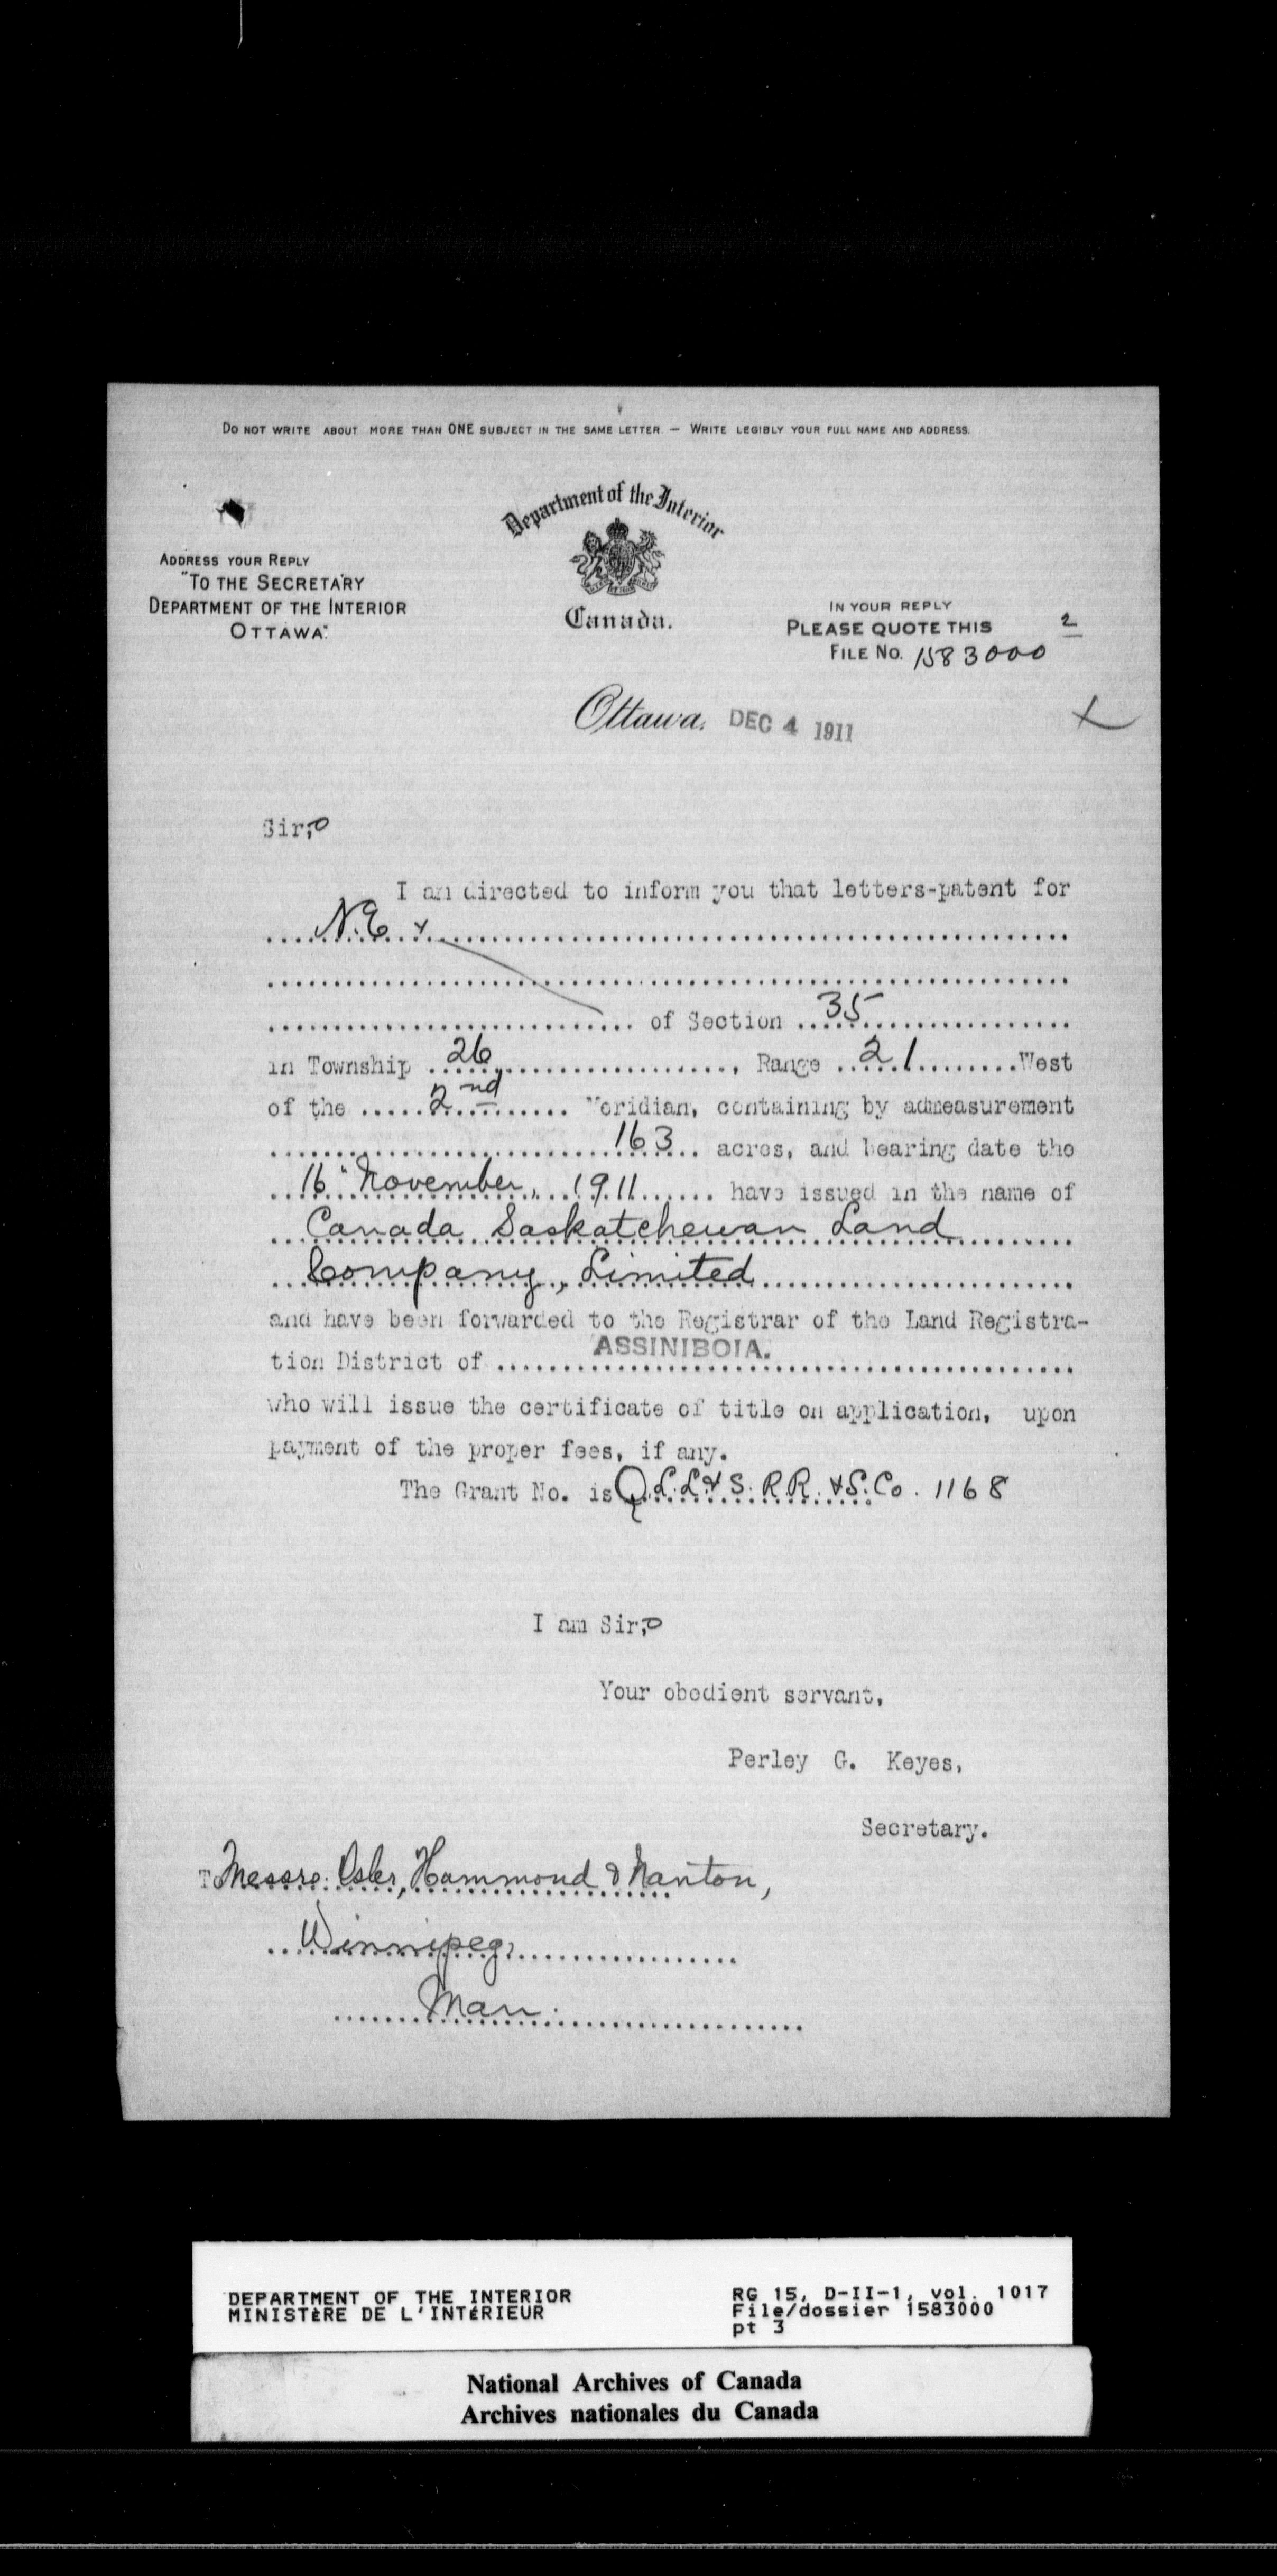 DO NOT WRITE ABOUT MORE THAN ONE SUBJECT IN THE SAME LETTER — WRITE LEGIBLY YOUR FULL NAME AND ADDRESS.
Department of the Interior
Canada.
ADDRESS YOUR REPLY
"TO THE SECRETARY
DEPARTMENT OF THE INTERIOR
OTTAWA"
IN YOUR REPLY
PLEASE QUOTE THIS
FILE No. 1583000 2
Ottawa, DEC 4 1911
Sir,
I am directed to inform you that letters-patent for
N.E ¼
of Section 35
in Township 26, Range 21 West
of the 2nd Meridian, containing by admeasurement
163 acres, and bearing date the
16" November, 1911 have issued in the name of
Canada Saskatchewan Land
Company, Limited
and have been forwarded to the Registrar of the Land Registra-
tion District of ASSINIBOIA.
who will issue the certificate of title on application, upon
payment of the proper fees, if any.
The Grant No. is Q.L.L & S. R.R. & S. Co. 1168
I am Sir,
Your obedient servant,
Perley G. Keyes,
Secretary.
Messrs. Osler, Hammond & Nanton,
Winnipeg,
Man.
DEPARTMENT OF THE INTERIOR
MINISTÈRE DE L'INTÉRIEUR
RG 15, D-II-1, vol. 1017
File/dossier 1583000
pt 3
National Archives of Canada
Archives nationales du Canada